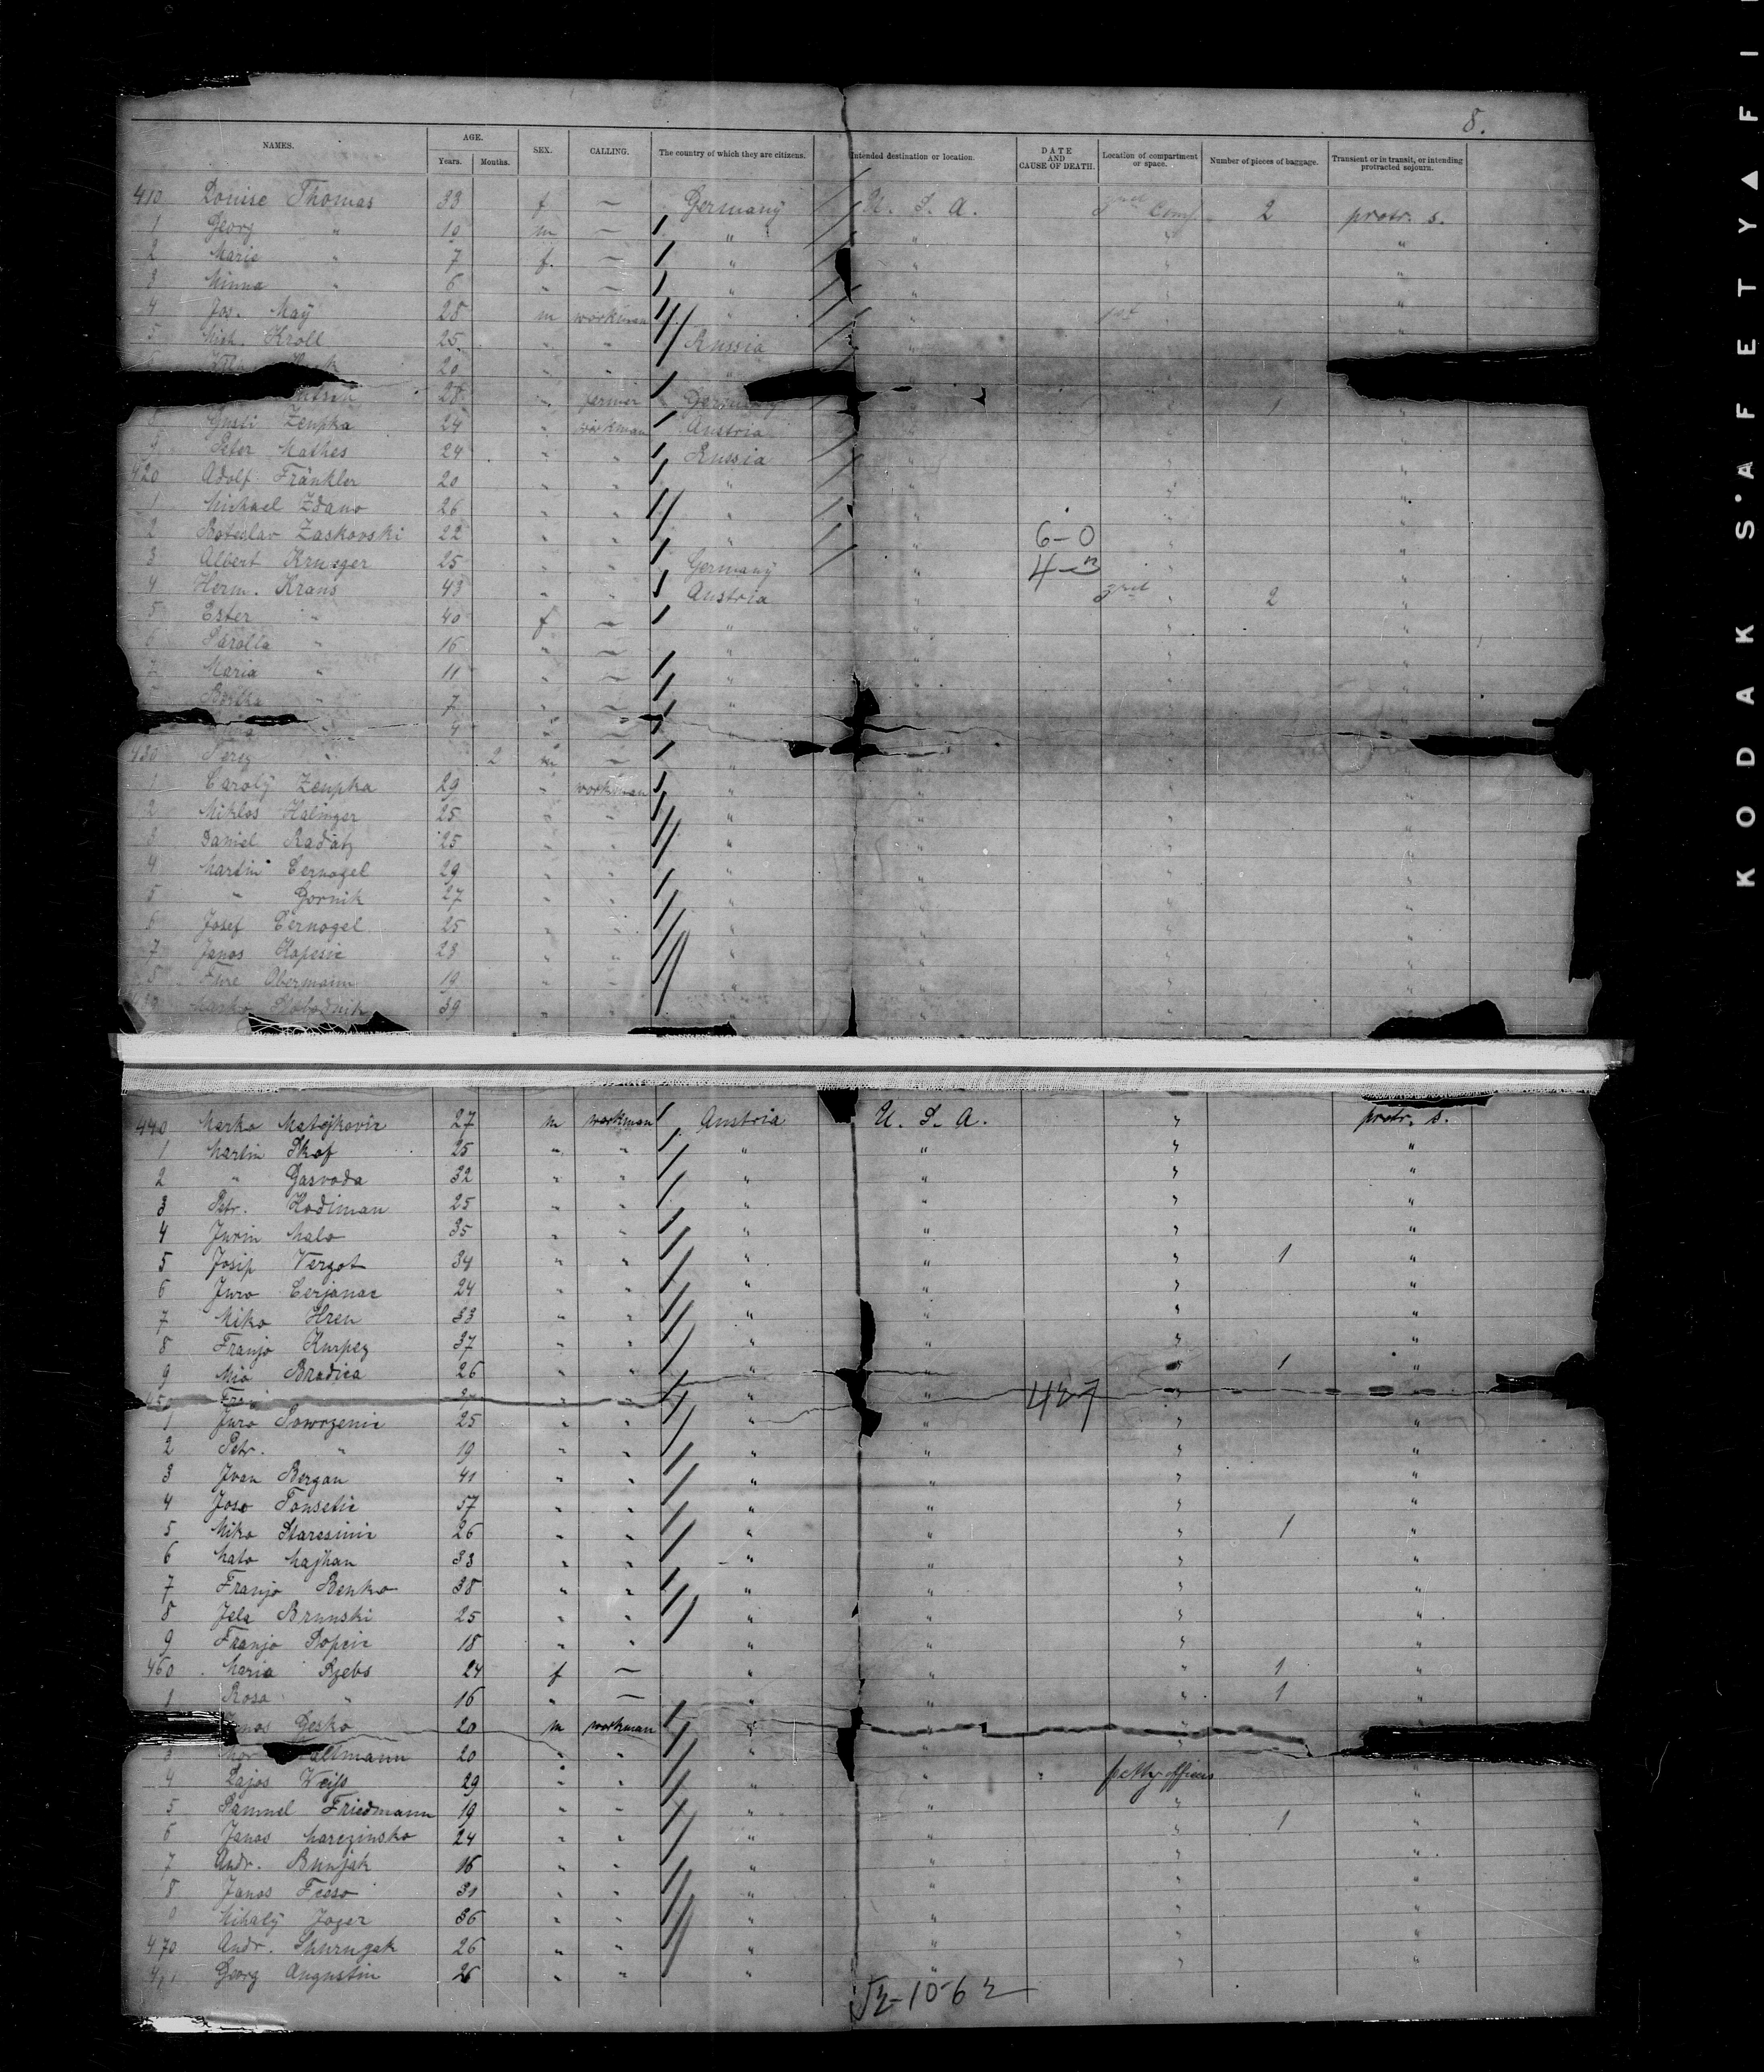 8.
NAMES. AGE. SEX. CALLING. The country of which they are citizens. Intended destination or location. DATE AND CAUSE OF DEATH. Location of compartment or space. Number of pieces of baggage. Transient or in transit, or intending protracted sojourn.
Years. Months.
410 Louise Thomas 33 f — Germany U. S. A. 3rd Comp. 2 protr. s.
1 Georg " 10 m — " " " "
2 Marie " 7 f. — " " " "
3 Minna " 6 " — " " " "
4 Jos. May 28 m workman " " 1st "
5 Mich. Kroll 25 " " Russia " "
20 " " "
28 " farmer Germany " 1 "
8 Gusti Zeupka 24 " workman Austria " " "
9 Peter Mathes 24 " " Russia " " "
420 Adolf Fränkler 20 " " " " " "
1 Michael Zdano 26 " " " " " "
2 Zaskovski 22 " " " " 6-0 " "
3 Albert Krueger 25 " " Germany " 4- " "
4 Herm. Krans 43 " " Austria 3rd " 2 "
5 Ester " 40 f — " " " "
6 Sarolta " 16 " — " " " "
7 Maria " 11 " — " " " "
Bertha " 7 " — " " " "
" 4 " — " " "
430 " 2 m — " " " "
1 Caroly Zeupka 29 " workman " " " "
2 Miklos Halinger 25 " " " " " "
3 Daniel Radatz 25 " " " " " "
4 Martin Cernogel 29 " " " " " "
5 " Gornik 27 " " " " " "
6 Josef Cernogel 25 " " " " " "
7 Janos Kopesic 28 " " " " " "
8 Obermaim 19 " " " " " "
439 Marko Slobodnik 39 " " " " " "
440 Marko Matejkovic 27 m workman Austria U. S. A. " protr. s.
1 Martin Skof 25 " " " " " "
2 " Gasvoda 32 " " " " " "
3 Petr. Kodiman 25 " " " " " "
4 Jurin Malo 35 " " " " " "
5 Josip Vergot 34 " " " " " 1 "
6 Juro Cerjanac 24 " " " " " "
7 Miko Hren 33 " " " " " "
8 Franjo Kurpez 37 " " " " " "
9 Mio Bradica 26 " " " " " 1 "
45 " " " " 427 "
1 Juro 25 " " " " " "
2 Petr. " 19 " " " " " "
3 Ivan Bergan 41 " " " " " "
4 Joso Tonsetic 37 " " " " " "
5 Miko Staresinic 26 " " " " " 1 "
6 Mato Majhan 33 " " " " " "
7 Franjo Benko 38 " " " " " "
8 Jela Brunski 25 " " " " " "
9 Franjo Popcic 18 " " " " " "
460 Maria Rzebs 24 f — " " " 1 "
1 Rosa " 16 " — " " " 1 "
Janos Gesko 20 m workman " " "
3 Mor altmann 20 " " " " " "
4 Lajos Weiss 29 " " " " petty officers "
5 Samuel Friedmann 19 " " " " " 1 "
6 Janos Marczinsko 24 " " " " " "
7 Andr. Bunjak 16 " " " " " "
8 Janos Fesso 31 " " " " " "
9 Mihaly Jager 36 " " " " " "
470 Andr. 26 " " " " " "
471 Georg Augustin 26 " " " "
10-6
KODAK SAFETY FI